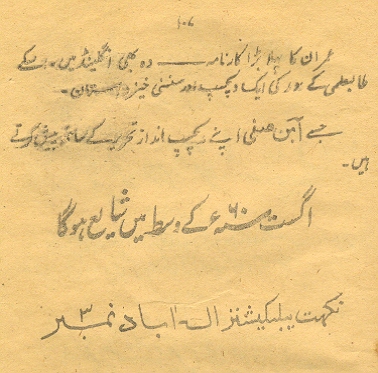 ۱۰۷
عمران کا پہلا بڑا کارنامہ ــــــــ وہ بھی انگلینڈ میں۔ اسکے
طالبعلمی کے دور کی ایک دلچسپ اور سنسنی خیز داستان۔
جسے ابن صفی اپنے دلچسپ انداز تحریر کے ساتھ پیش کرتے
ہیں۔
اگست ۶۰ء کے وسط میں شایع ہوگا
نکہت پبلیکیشنز الہ اباد نمبر ۳